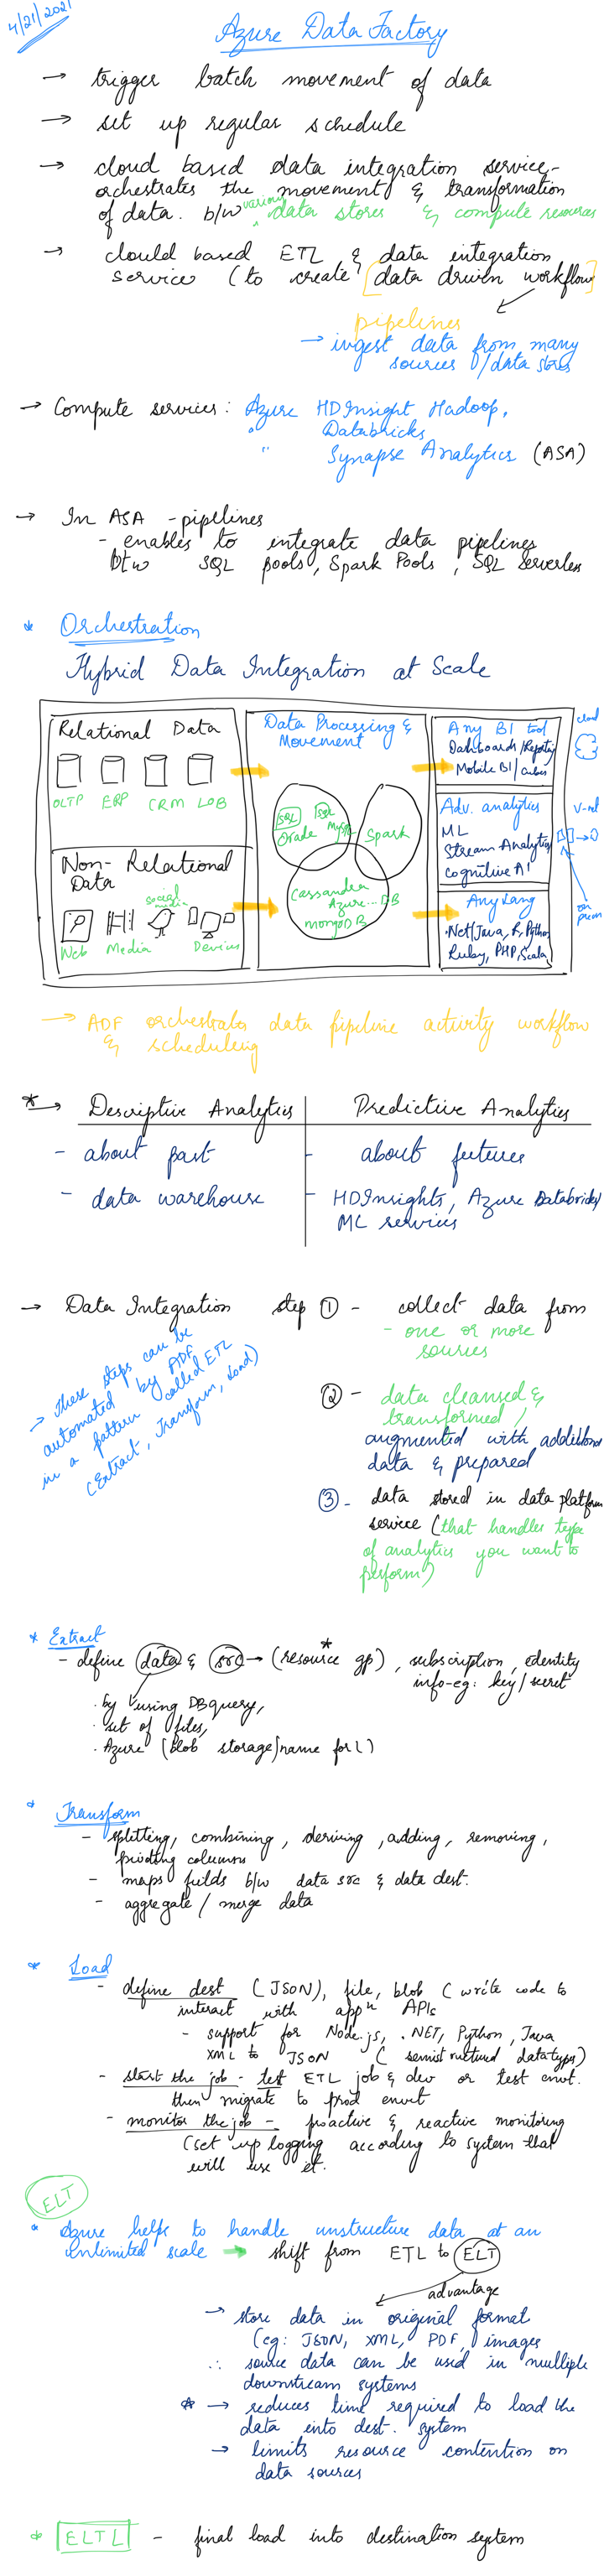 4/21/2021
Azure Data Factory
→ trigger batch movement of data
→ set up regular schedule
→ cloud based data integration service-
orchestrates the movement & transformation
of data. b/w various data stores & compute resources
→ clould based ETL & data integration
service (to create [data driven workflow]
pipelines
→ ingest data from many
sources/data stores
→ Compute services: Azure HDInsight Hadoop,
" Databricks
" Synapse Analytics (ASA)
→ In ASA - pipelines
- enables to integrate data pipelines
btw SQL pools, Spark Pools, SQL serverless
* Orchestration
Hybrid Data Integration at Scale
Relational Data
OLTP ERP CRM LOB
Non-Relational
Data
social
media
Web Media Devices
Data Processing &
Movement
SQL SQL
Oracle MySQL
Spark
Cassandra
Azure...DB
mongoDB
Any BI tool
Dashboards/Reporting
Mobile BI/cubes
Adv. analytics
ML
Stream Analytics
Cognitive AI
Any Lang
.Net/Java, R, Python
Ruby, PHP, Scala
cloud
V-net
on
prem
→ ADF orchestrates data pipeline activity workflow
& scheduling
* → Descriptive Analytics
- about past
- data warehouse
Predictive Analytics
- about future
- HDInsights, Azure Databricks/
ML services
→ Data Integration step ① - collect data from
- one or more
sources
→ These steps can be
automated by ADF
in a pattern called ETL
(Extract, Transform, Load)
② - data cleansed &
transformed/
augmented with additional
data & prepared
③ - data stored in data platform
service (that handles type
of analytics you want to
perform)
* Extract
- define data & src → (resource gp)*, subscription, identity
info-eg: key/secret
. by using DB query,
. set of files,
. Azure (blob storage/name for L)
* Transform
- splitting, combining, deriving, adding, removing,
pivoting columns
- maps fields b/w data src & data dest.
- aggregate / merge data
* Load
- define dest (JSON), file, blob (write code to
interact with appn APIs
- support for Node.js, .NET, Python, Java
XML to JSON (semistructured datatypes)
- start the job - test ETL job & dev or test envt.
then migrate to prod envt
- monitor the job - proactive & reactive monitoring
(set up logging according to system that
will use it.
ELT
* Azure helps to handle unstructure data at an
unlimited scale → shift from ETL to ELT
advantage
→ store data in original format
(eg: JSON, XML, PDF, images
∴ source data can be used in multiple
downstream systems
* → reduces time required to load the
data into dest. system
→ limits resource contention on
data sources
* ELTL - final load into destination system